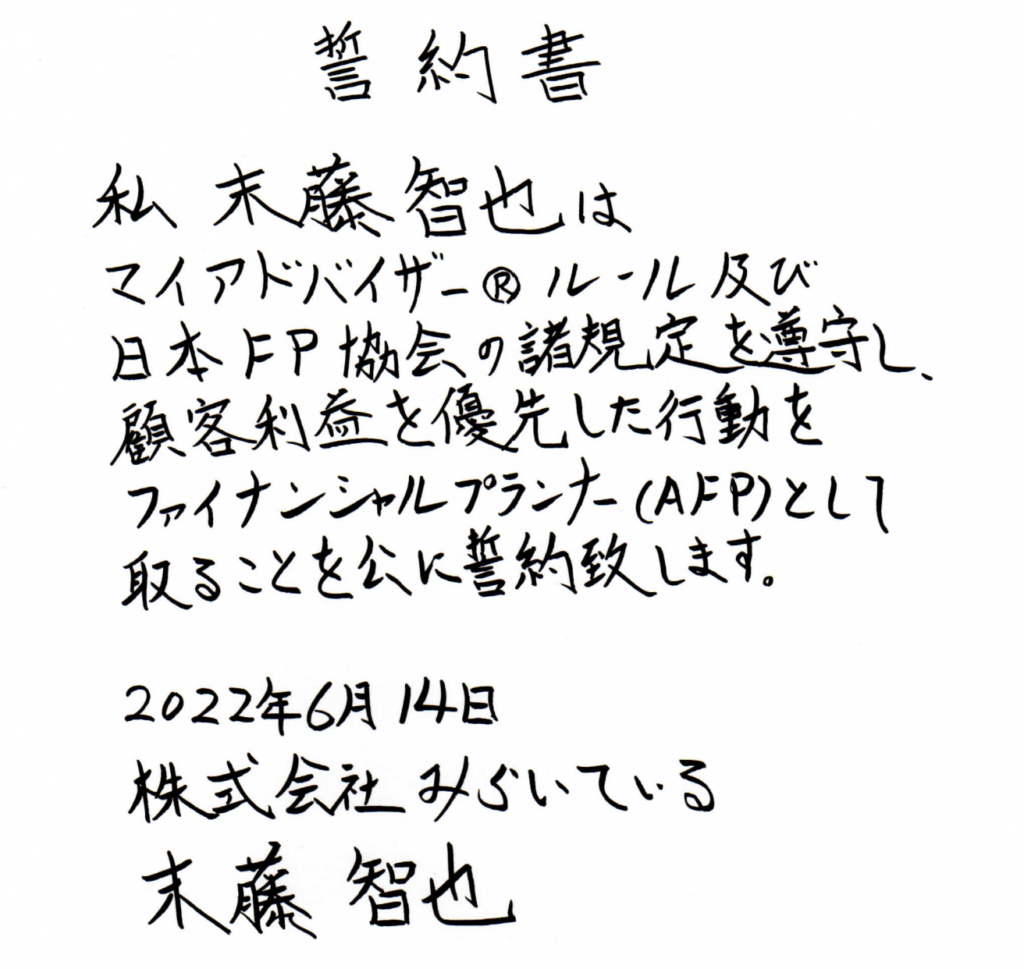 誓約書
私 末藤 智也は
マイアドバイザー®ルール及び
日本FP協会の諸規定を遵守し、
顧客利益を優先した行動を
ファイナンシャルプランナー(AFP)として
取ることを公に誓約致します。
2022年6月14日
株式会社みらいている
末藤 智也